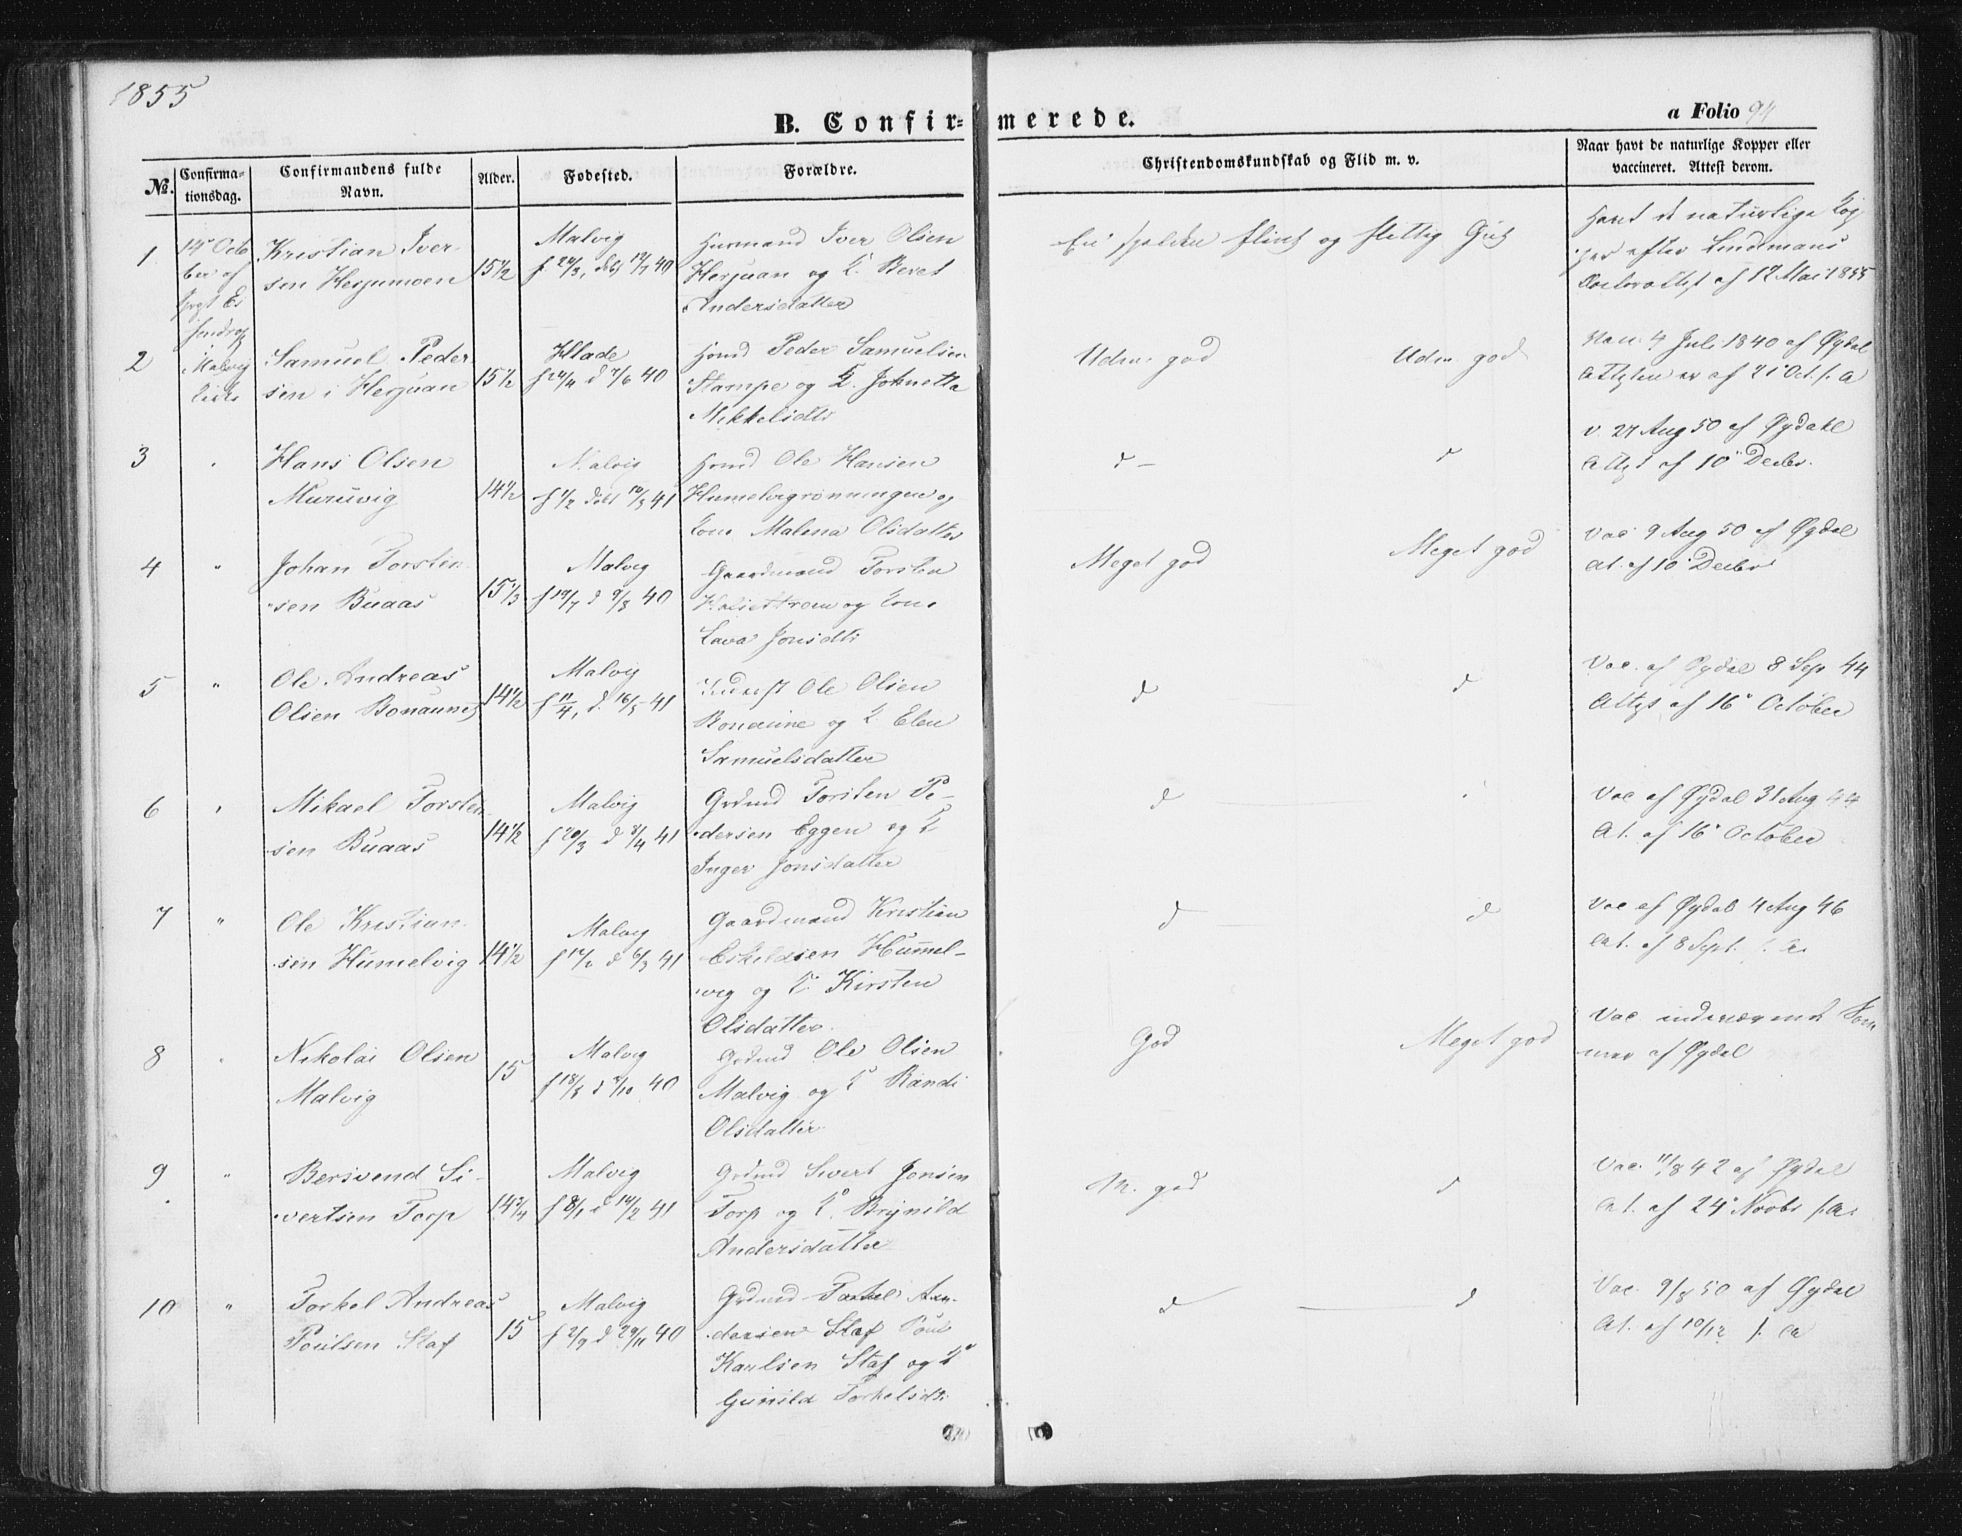 1855
B. Confir= merede.
a Folio 94
No. Confirma=tionsdag. Confirmandens fulde Navn. Alder. Fødested. Forældre. Christendomskundskab og Flid m. v. Naar havt de naturlige Kopper eller vaccineret. Attest derom.
1
14 Octo
ber af
Malvig
Kristian Iver
sen Herjumoen
15½
Malvig
40
Huusmand Iver Olsen
Herjuan og K. Beret
Andersdatter
En sjelden flink og flittig Gut
Havt de naturlige Kop
per efter Lindmans
af 17 Mai 1855
2
Samuel Peder
sen i Herjuan
15½
Hlade
f 24/4 d 7/6 40
Huusmd Peder Samuelsen
Stampe og K. Johnetta
Mikkelsdtr
Udm. god
Udm. god
Vac. 4 Juli 1840 af Øydal
Attesten er af 21 Oct. f. A
3
"
Hans Olsen
Muruvig
14½
Malvig
f ½ døbt 10/3 41
Husmd Ole Hansen
Humelvigrønningen og
Kone Malena Olsdatter
d
d
v. 27 Aug 50 af Øydahl
Attest af 10 Decbr.
4
"
Johan Torsten
sen Buaas
15⅓
Malvig
f 19/7 d 9/8 40
Gaardmand Torsten
og Kone
Lava Jonsdtr
Meget god
Meget god
Vac 9 Aug 50 af Øydal
At. af 10 Decbr
5
"
Ole Andreas
Olsen Bonaunet
14½
Malvig
f 11/4, d. 16/5 41
Ole Olsen
Bonaune og K Elen
Samuelsdatter
d
d
Vac. af Øydal 8 Sep 44
Attest af 16 October
6
"
Mikael Torsten
sen Buaas
14½
Malvig
f 20/3 d 4 41
Grdmd Torsten Pe-
dersen Eggen og K
Inger Jonsdatter
d
Vac af Øydal 31 Aug 44
At. af 16 October
7
"
Ole Kristian
sen Humelvig
14½
Malvig
d 6/3 41
Gaardmand Kristian
Eskeldsen Hummel-
vig og K. Kirsten
Olsdatter.
d
d
Vac af Øydal 4 Aug 46
At. af 8 Sept. f. A.
8
"
Nikolai Olsen
Malvig
15
Malvig
f 18/8 d /10 40
Grdmd Ole Olsen
Malvig og K Randi
Olsdatter
God
Meget god
Vac indeværende Som
mer af Øydal
9
"
Bersvend Si-
vertsen Torp
14¾
Malvig
f 8/1 d 14/2 41
Grdmd Sivert Jonsen
Torp og K. Brynild
Andersdatter
M. god
d
Vac. 11/8 42 af Øydal
At. af 24 Novbr f. A.
10
"
Torkel Andreas
Poulsen Staf
15
Malvig
f 2/9 d 29/11 40
Grdmd Torkel An-
dersen Staf Poul
Karlsen Staf og K
Gunild Torkelsdtr
d
d
Vac. 9/8 50 af Øydal
At. af 10/12 f. A